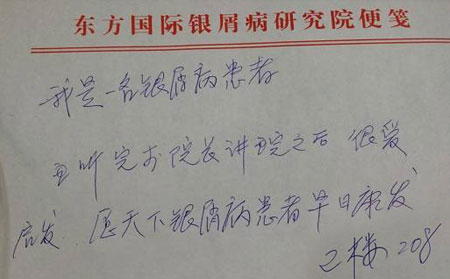 东方国际银屑病研究院便笺
我是一名银屑病患者
再听完于院长讲完之后 很爱
启发 愿天下银屑病患者早日康复
2楼 208